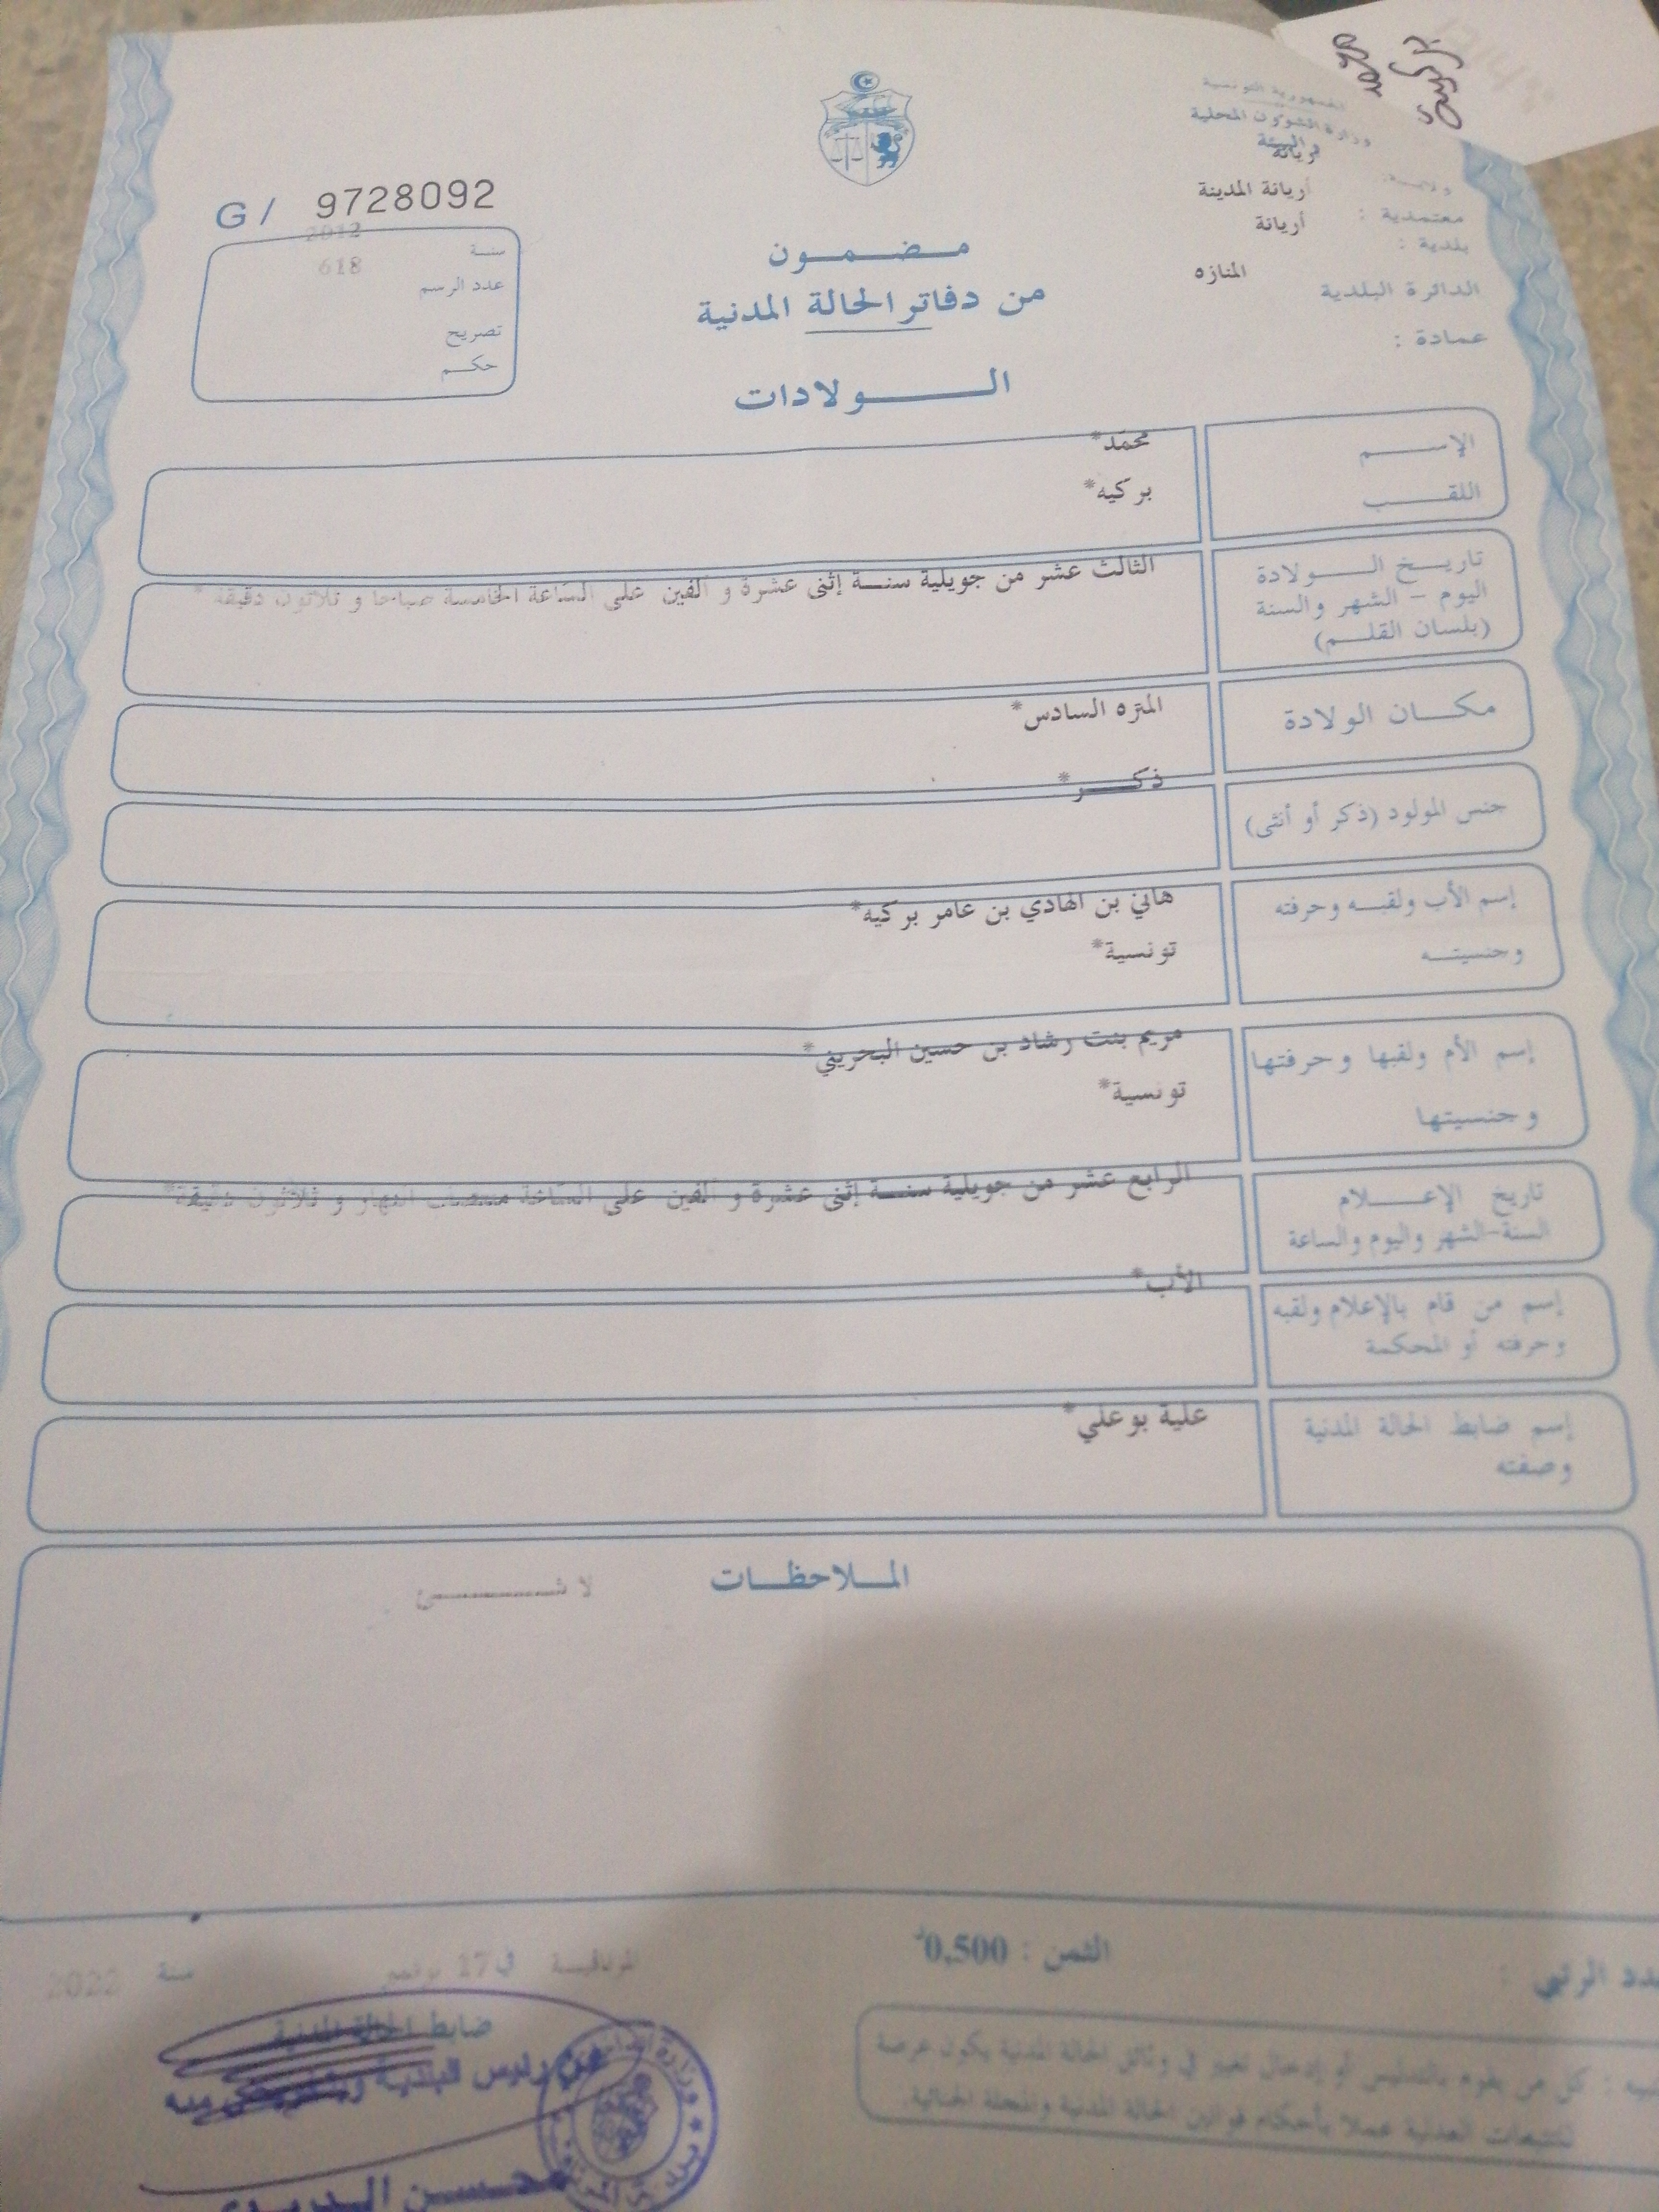 محمد
بركية
الجمهورية التونسية
وزارة الشؤون المحلية
و البيئة
ولاية:
أريانة
معتمدية : أريانة المدينة
بلدية : أريانة
الدائرة البلدية المنازه
عمادة :
G/ 9728092
سنة 2012
عدد الرسم 618
تصريح
حكم
مضمون
من دفاتر الحالة المدنية
الولادات
الإسم محمّد*
اللقب بركيه*
تاريخ الولادة
اليوم - الشهر والسنة
(بلسان القلم)
الثالث عشر من جويلية سنة إثنى عشرة و ألفين على الساعة الخامسة صباحا و ثلاثون دقيقة *
مكان الولادة المنزه السادس*
جنس المولود (ذكر أو أنثى) ذكر*
إسم الأب ولقبه وحرفته هاني بن الهادي بن عامر بركيه*
وجنسيته تونسية*
إسم الأم ولقبها وحرفتها مريم بنت رشاد بن حسين البحريني*
وجنسيتها تونسية*
تاريخ الإعلام
السنة-الشهر واليوم والساعة
الرابع عشر من جويلية سنة إثنى عشرة و ألفين على الساعة منتصف النهار و ثلاثون دقيقة*
إسم من قام بالإعلام ولقبه
وحرفته أو المحكمة
الأب*
إسم ضابط الحالة المدنية
وصفته
علية بوعلي*
الملاحظات
لا شئ
الرتبي :
الثمن : 0,500د
في 17 نوفمبر سنة 2022
ضابط الحالة المدنية
عن رئيس البلدية
محسن
كل من يقوم بالتدليس أو إدخال تغيير في وثائق الحالة المدنية يكون عرضة
للتتبعات العدلية عملا بأحكام قوانين الحالة المدنية والمجلة الجنائية.